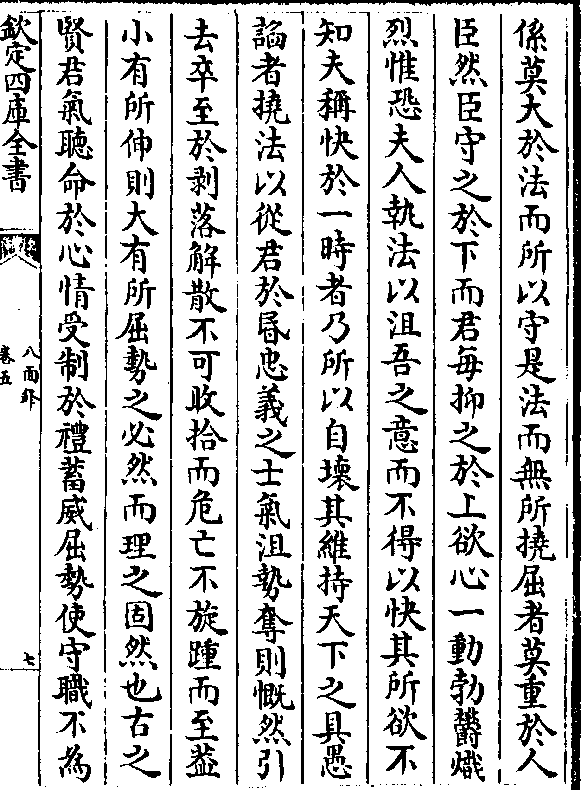 係莫大於法而所以守是法而無所撓屈者莫重於人
臣然臣守之於下而君每抑之於上欲心一動勃鬱熾
烈惟恐夫人執法以沮吾之意而不得以快其所欲不
知夫稱快於一時者乃所以自壞其維持天下之具愚
謟者撓法以從君於昬忠義之士氣沮勢奪則慨然引
去卒至於剥落解散不可收拾而危亡不旋踵而至葢
小有所伸則大有所屈勢之必然而理之固然也古之
賢君氣聽命於心情受制於禮蓄威屈勢使守職不為
欽定四庫全書
八面鋒
卷五
七